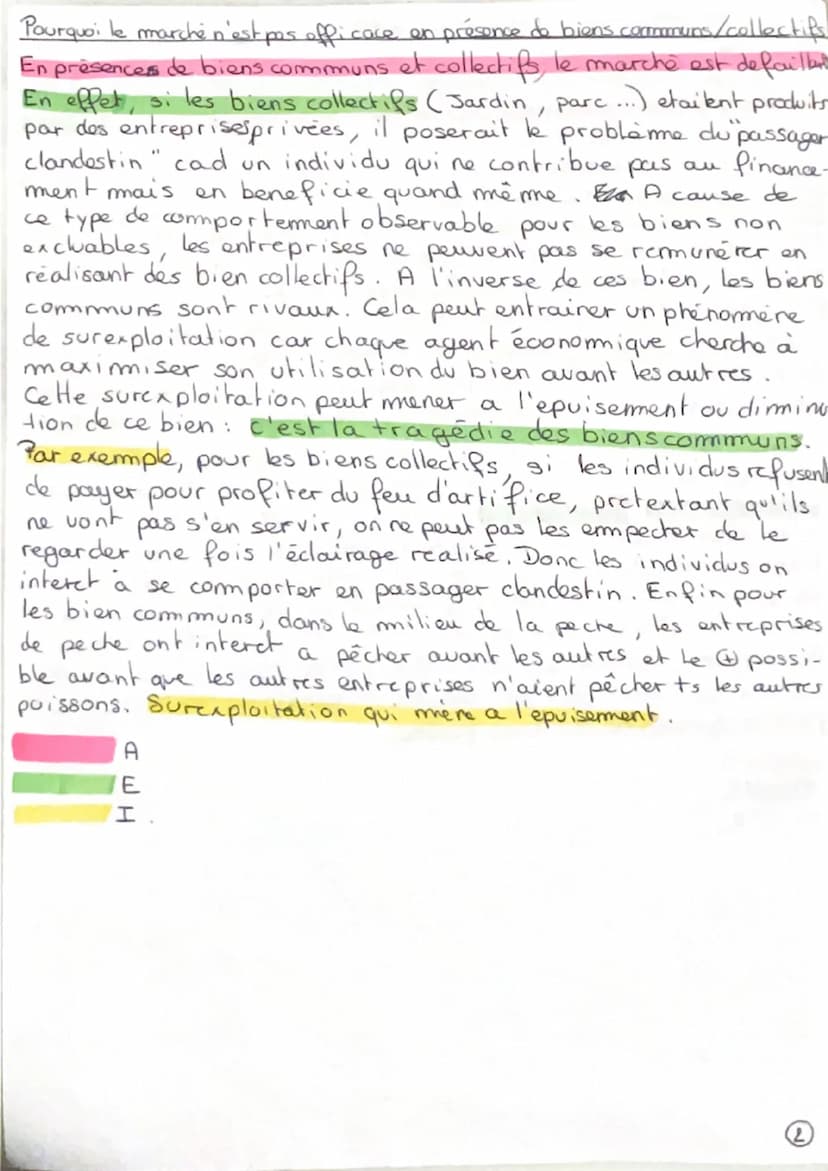 Pourquoi le marché n'est pas efficace en présence de biens communs/collectifs
En présences de biens communs et collectifs, le marché est defaillant
En effet, si les biens collectifs (Jardin, parc ...) etaitent produits
par des entreprises privées, il poserait le problème du "passager
clandestin" cad un individu qui ne contribue pas au finance-
ment mais en beneficie quand même. A cause de
ce type de comportement observable pour les biens non
excluables, les entreprises ne peuvent pas se remunérer en
réalisant des bien collectifs. A l'inverse de ces bien, les biens
communs sont rivaux. Cela peut entrainer un phénomène
de surexploitation car chaque agent économique cherche à
maximiser son utilisation du bien avant les autres.
Cette surexploitation peut mener a l'epuisement ou diminu
tion de ce bien : c'est la tragédie des biens communs.
Par exemple, pour les biens collectifs, si les individus refusent
de payer pour profiter du feu d'artifice, pretextant qu'ils
ne vont pas s'en servir, on ne peut pas les empecher de le
regarder une fois l'éclairage realisé. Donc les individus on
interet à se comporter en passager clandestin. Enfin pour
les bien communs, dans le milieu de la peche, les entreprises
de peche ont interet a pêcher avant les autres et le + possi-
ble avant que les autres entreprises n'aient pêcher ts les autres
poissons. Surexploitation qui mène a l'epuisement.
A
E
I.
2